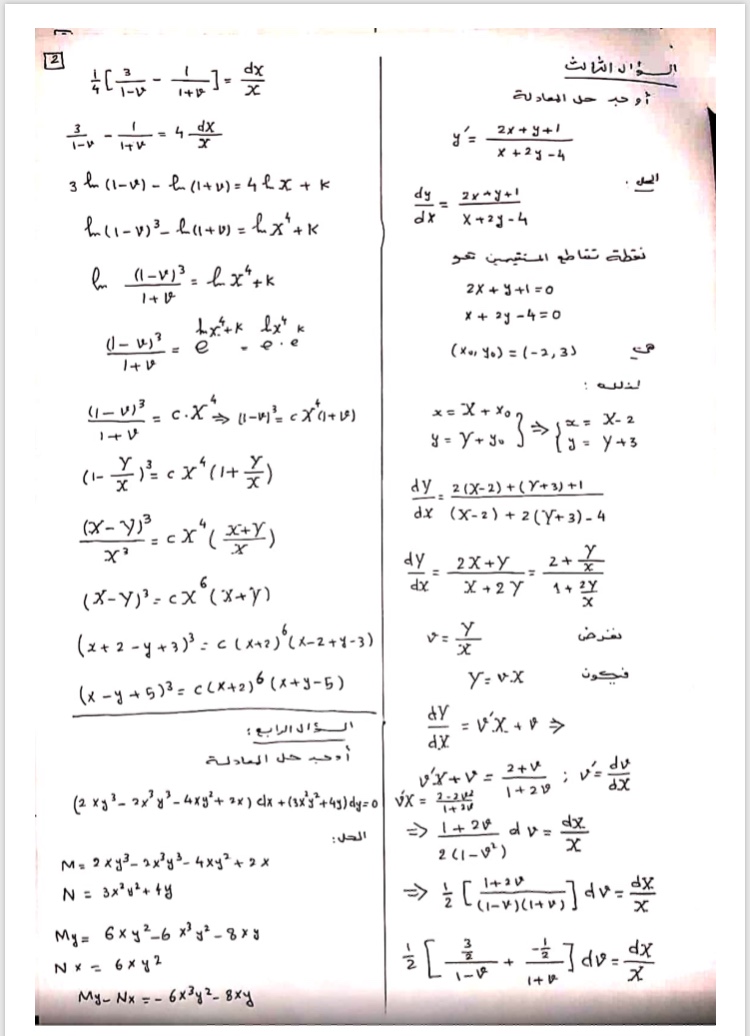 السؤال الثالث
أوجد حل المعادلة
y′ = (2x + y + 1)/(x + 2y - 4)
الحل.
dy/dx = (2x + y + 1)/(x + 2y - 4)
نقطة تقاطع المستقيمين نحو
2x + y + 1 = 0
x + 2y - 4 = 0
(x₀, y₀) = (-2, 3) هي
لذلك :
x = X + x₀
y = Y + y₀ } ⇒ { x = X - 2
y = Y + 3
dY/dX = (2(X-2) + (Y+3) + 1)/((X-2) + 2(Y+3) - 4)
dY/dX = (2X + Y)/(X + 2Y) = (2 + Y/X)/(1 + 2Y/X)
v = Y/X نفرض
Y = v.X فيكون
dY/dX = v′X + v ⇒
v′X + v = (2 + v)/(1 + 2v) ; v′ = dv/dX
v′X = (2 - 2v²)/(1 + 2v)
⇒ (1 + 2v)/(2(1 - v²)) dv = dX/X
⇒ 1/2 [(1 + 2v)/((1 - v)(1 + v))] dv = dX/X
1/2 [(3/2)/(1 - v) + (-1/2)/(1 + v)] dv = dX/X
2
1/4 [3/(1 - v) - 1/(1 + v)] = dX/X
3/(1 - v) - 1/(1 + v) = 4 dX/X
3 ln (1 - v) - ln (1 + v) = 4 ln X + k
ln (1 - v)³ - ln (1 + v) = ln X⁴ + k
ln (1 - v)³/(1 + v) = ln X⁴ + k
(1 - v)³/(1 + v) = e^(ln X⁴ + k) = e^(ln X⁴) . e^k
(1 - v)³/(1 + v) = c . X⁴ ⇒ (1 - v)³ = c X⁴ (1 + v)
(1 - Y/X)³ = c X⁴ (1 + Y/X)
(X - Y)³/X³ = c X⁴ ((X + Y)/X)
(X - Y)³ = c X⁶ (X + Y)
(x + 2 - y + 3)³ = c (x + 2)⁶ (x - 2 + y - 3)
(x - y + 5)³ = c (x + 2)⁶ (x + y - 5)
السؤال الرابع :
أوجد حل المعادلة
(2xy³ - 2x³y³ - 4xy² + 2x) dx + (3x²y² + 4y) dy = 0
الحل:
M = 2xy³ - 2x³y³ - 4xy² + 2x
N = 3x²y² + 4y
My = 6xy² - 6x³y² - 8xy
Nx = 6xy²
My - Nx = - 6x³y² - 8xy